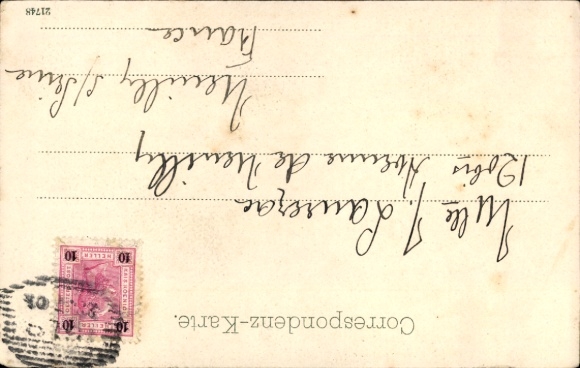 Correspondenz-Karte.
10 HELLER 10
10 HELLER 10
Mlle J. Lauzerac
120bis Avenue de Neuilly
Neuilly s/Seine
France
21748